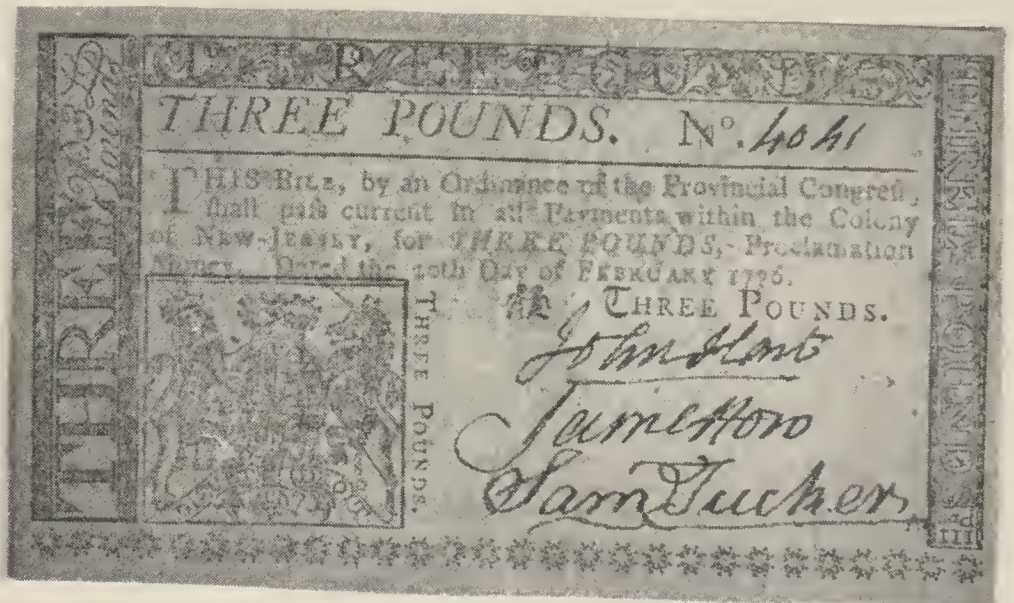 THREE Pounds
THREE POUNDS
THREE POUNDS. No. 4041
THIS BILL, by an Ordinance of the Provincial Congreſs,
ſhall paſs current in all Payments within the Colony
of NEW-JERSEY, for THREE POUNDS, Proclamation
Money. Dated the 20th Day of FEBRUARY 1776.
THREE POUNDS.
THREE POUNDS.
John Hart
James How
Sam Tucker
THREE POUNDS
III